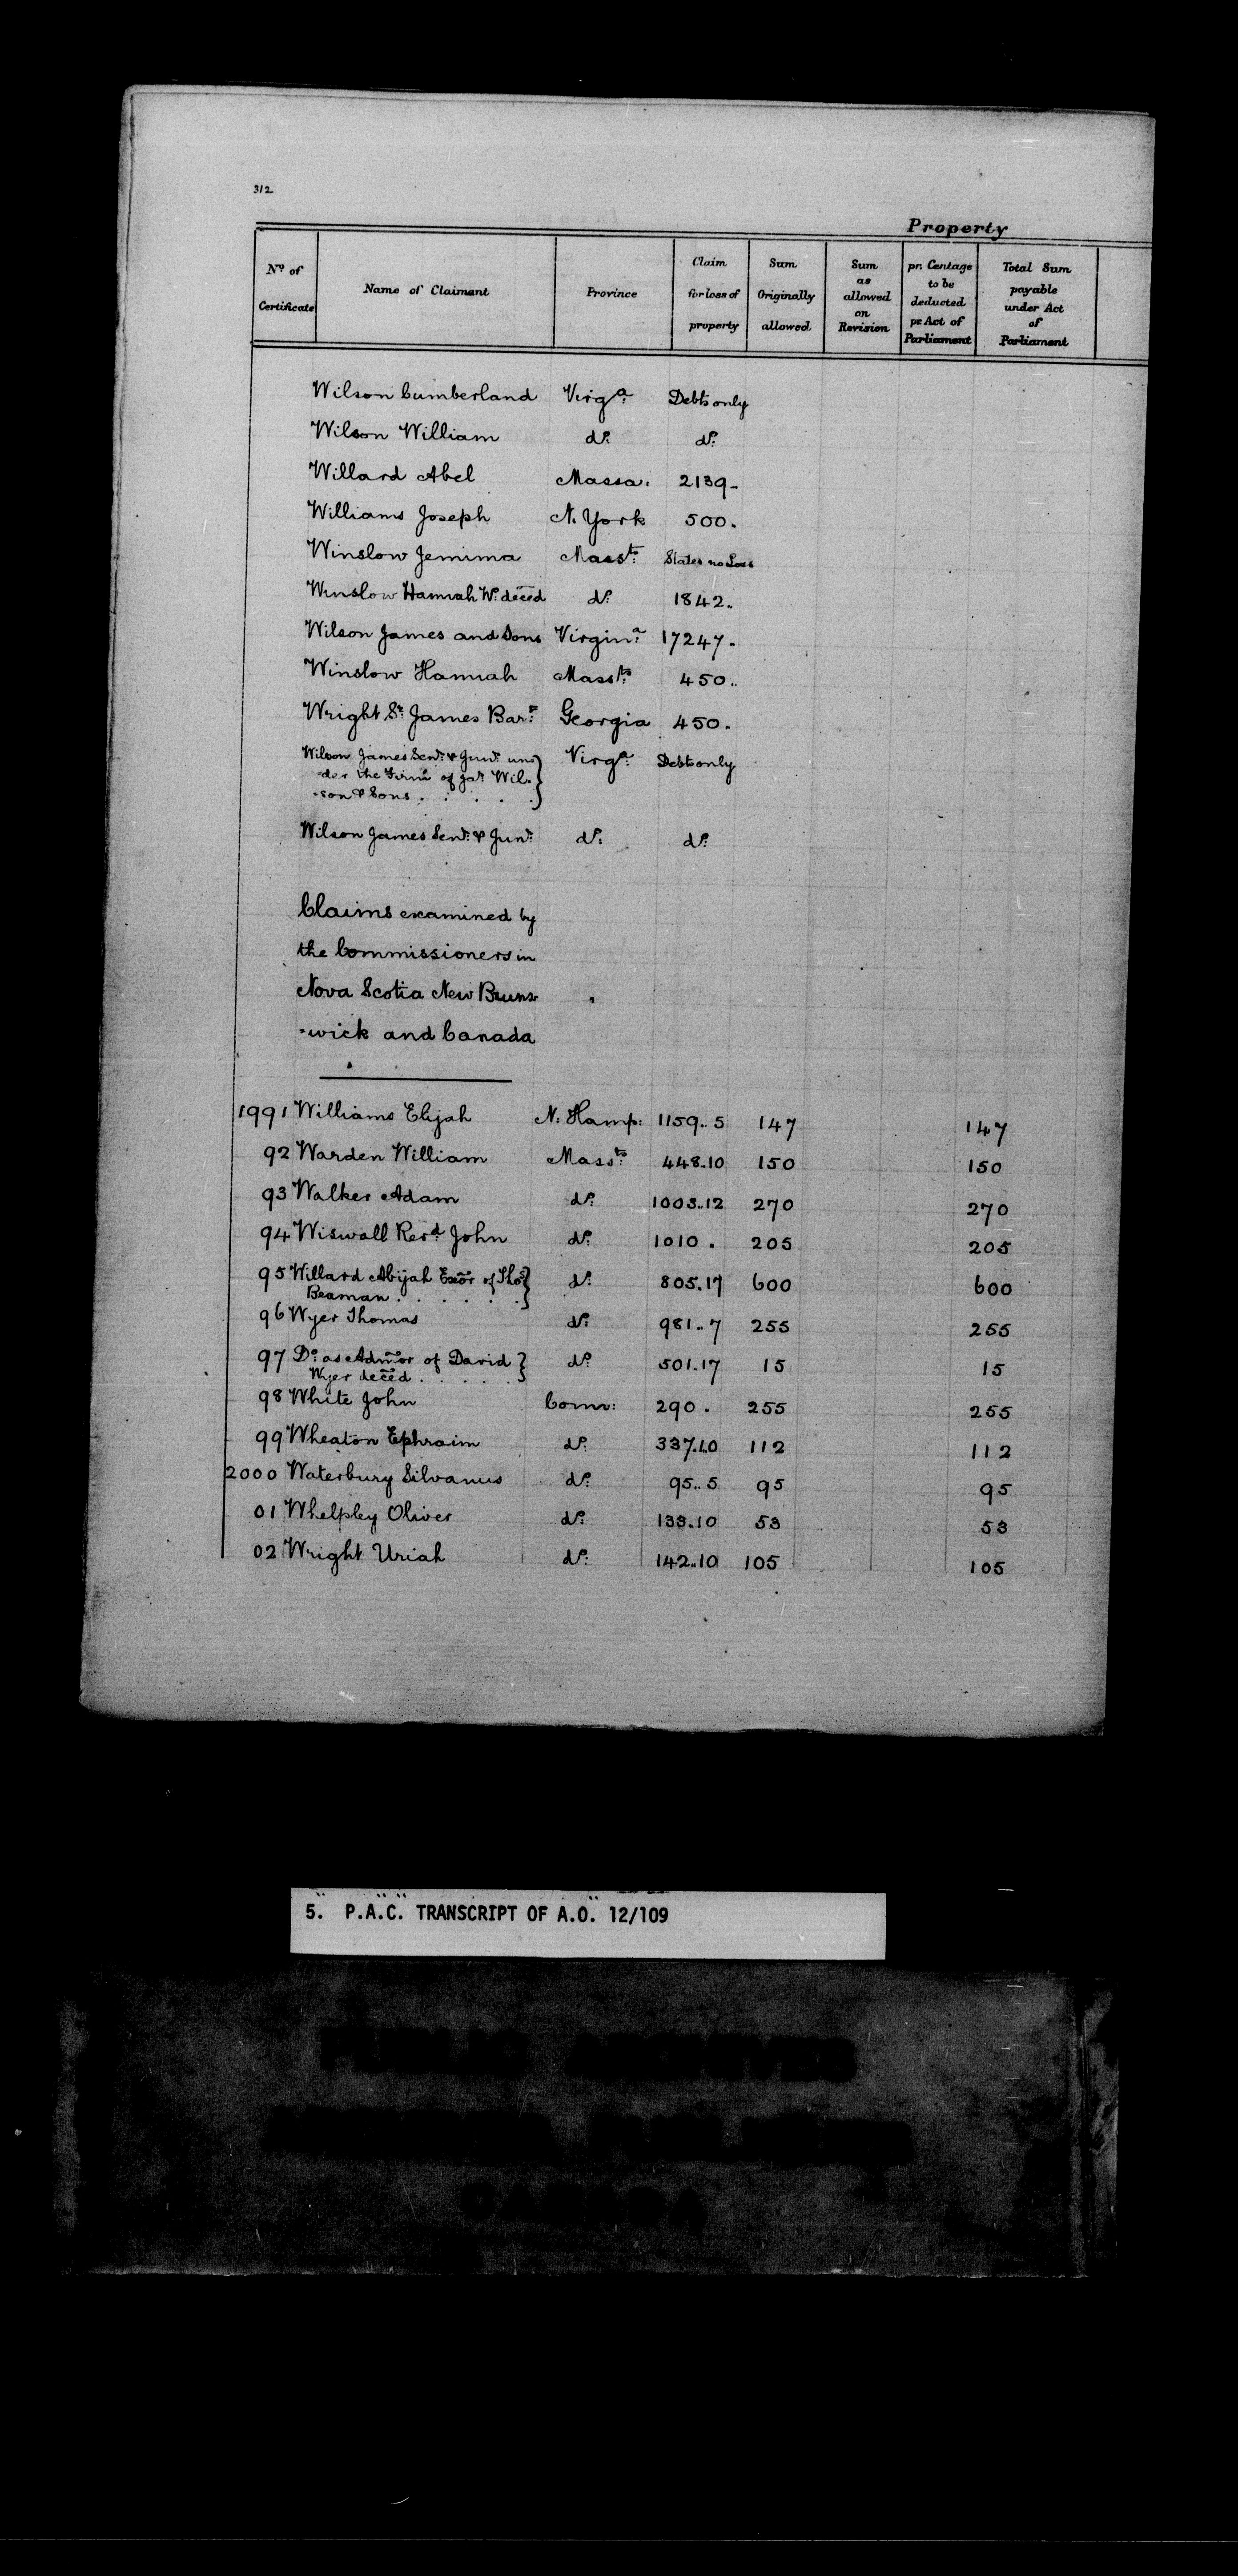 312
Property
No. of Certificate
Name of Claimant
Province
Claim for loss of property
Sum Originally allowed
Sum as allowed on Revision
pr. Centage to be deducted pr Act of Parliament
Total Sum payable under Act of Parliament
Wilson Cumberland Virga. Debts only
Wilson William do. do.
Willard Abel Massa. 2139..
Williams Joseph N. York 500.
Winslow Jemima Massts. States no Loss
Winslow Hannah Wo. deced do. 1842..
Wilson James and Sons Virgina. 17247.
Winslow Hannah Massts. 450..
Wright Sr. James Bart. Georgia 450.
Wilson James Senr. & Junr. un= Virga. Debts only
=der the Firm of Jas. Wil=
=son & Sons . . . . .
Wilson James Senr. & Junr. do. do.
Claims examined by
the Commissioners in
Nova Scotia New Bruns=
=wick and Canada
1991 Williams Elijah N. Hamp: 1159..5 147 147
92 Warden William Massts. 448..10 150 150
93 Walker Adam do. 1003..12 270 270
94 Wiswall Revd. John do. 1010. 205 205
95 Willard Abijah Exor of Thos. do. 805.17 600 600
Beaman . . . . . .
96 Wyer Thomas do. 981..7 255 255
97 Do. as Admor of David do. 501.17 15 15
Wyer deced . . . . .
98 White John Conn: 290. 255 255
99 Wheaton Ephraim do. 337.10 112 112
2000 Waterbury Silvanus do. 95..5 95 95
01 Whelpley Oliver do. 133.10 53 53
02 Wright Uriah do. 142..10 105 105
5. P.A.C. TRANSCRIPT OF A.O. 12/109